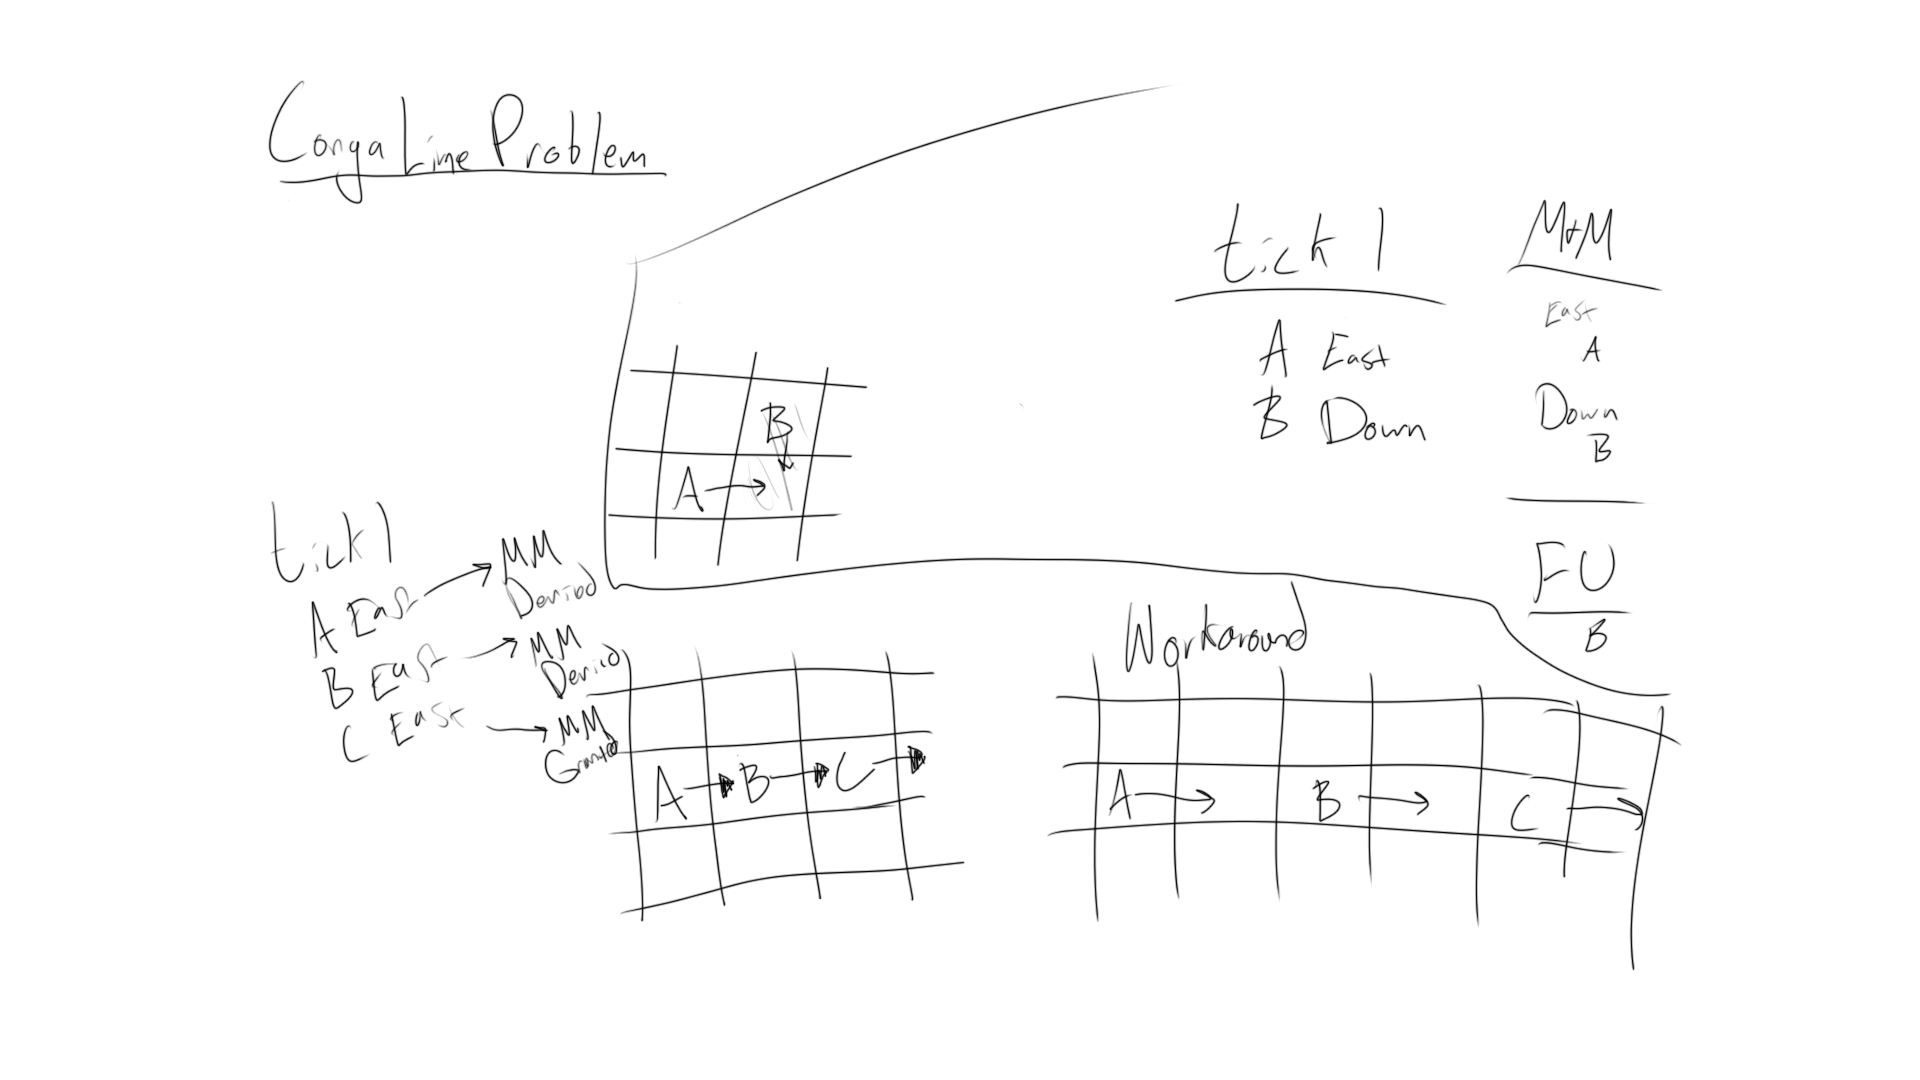 Conga Line Problem
tick 1
A East
B Down
M+M
East
A
Down
B
FU
B
B
A
tick 1
A East
MM
Denied
B East
MM
Denied
C East
MM
Granted
A B C
Workaround
A B C